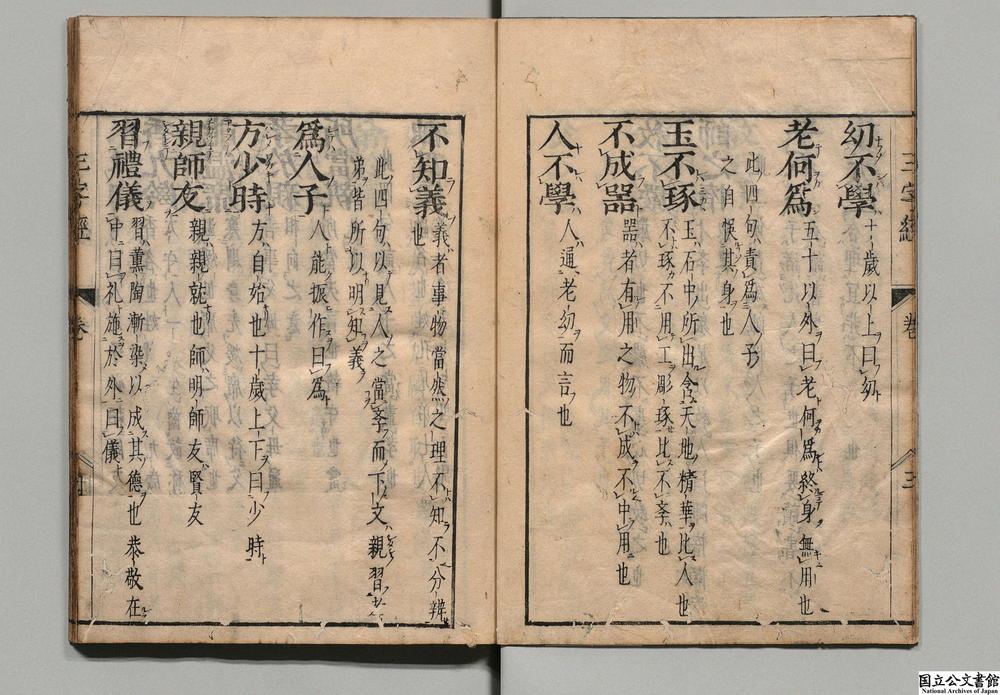 幼不學 十歲以上曰幼
老何爲 五十以外曰老何爲終身無用也
此四句責爲人子
之自悞其身也
玉不琢 玉石中所出含天地精華比人也
不琢不用工彫琢比不斈也
不成器 器者有用之物不成不中用也
人不學 人通老幼而言也
不知義 義者事物當然之理不知不分辨
也
此四句以見人之當斈而下文親習
弟皆所以明知義
爲人子 人能振作曰爲
方少時 方自始也十歲上下曰少時
親師友 親親就也師明師友賢友
習禮儀 習薫陶漸染以成其德也恭敬在
中曰礼施於外曰儀
三字經
卷
三
三字經
卷
四
国立公文書館
National Archives of Japan